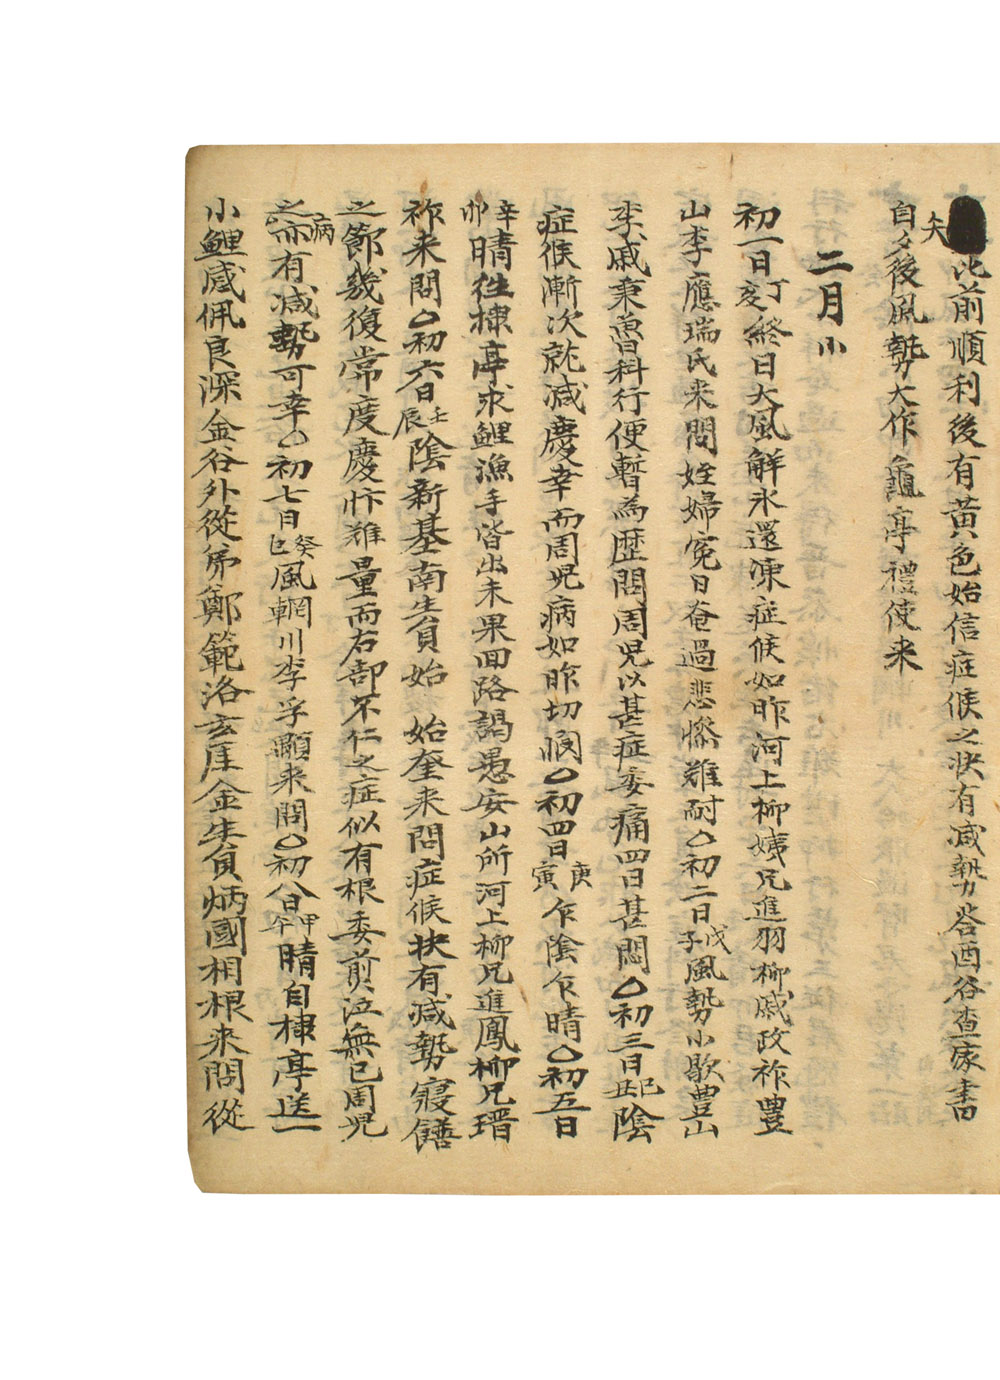 大比前順利後有黃色始信症候之狀有减勢答酉谷査家書
自夕後風勢大作龜亭禮使來
二月小
初一日丁亥終日大風解氷還凍症候如昨河上柳姨兄進羽柳戚政祚豊
山李應瑞氏來問姪婦寃日奄過悲慘難耐○初二日戊子風勢小歇豊山
李戚秉魯科行便暫爲歷問周兒以甚症委痛四日甚悶○初三日己丑陰
症候漸次就减慶幸而周兒病如昨切悶○初四日庚寅乍陰乍晴○初五日
辛卯晴往棣亭求鯉漁手皆出未果回路謁愚安山所河上柳兄進鳳柳兄瑨
祚來問○初六日壬辰陰新基南生員始 始奎來問症候快有减勢寢饍
之節幾復常度慶忭難量而右部不仁之症似有根委煎泣無已周兒
之病亦有减勢可幸○初七日癸巳風輞川李孚顯來問○初八日甲午晴自棣亭送一
小鯉感佩良深金谷外從弟鄭範洛玄厓金生員炳國相根來問從